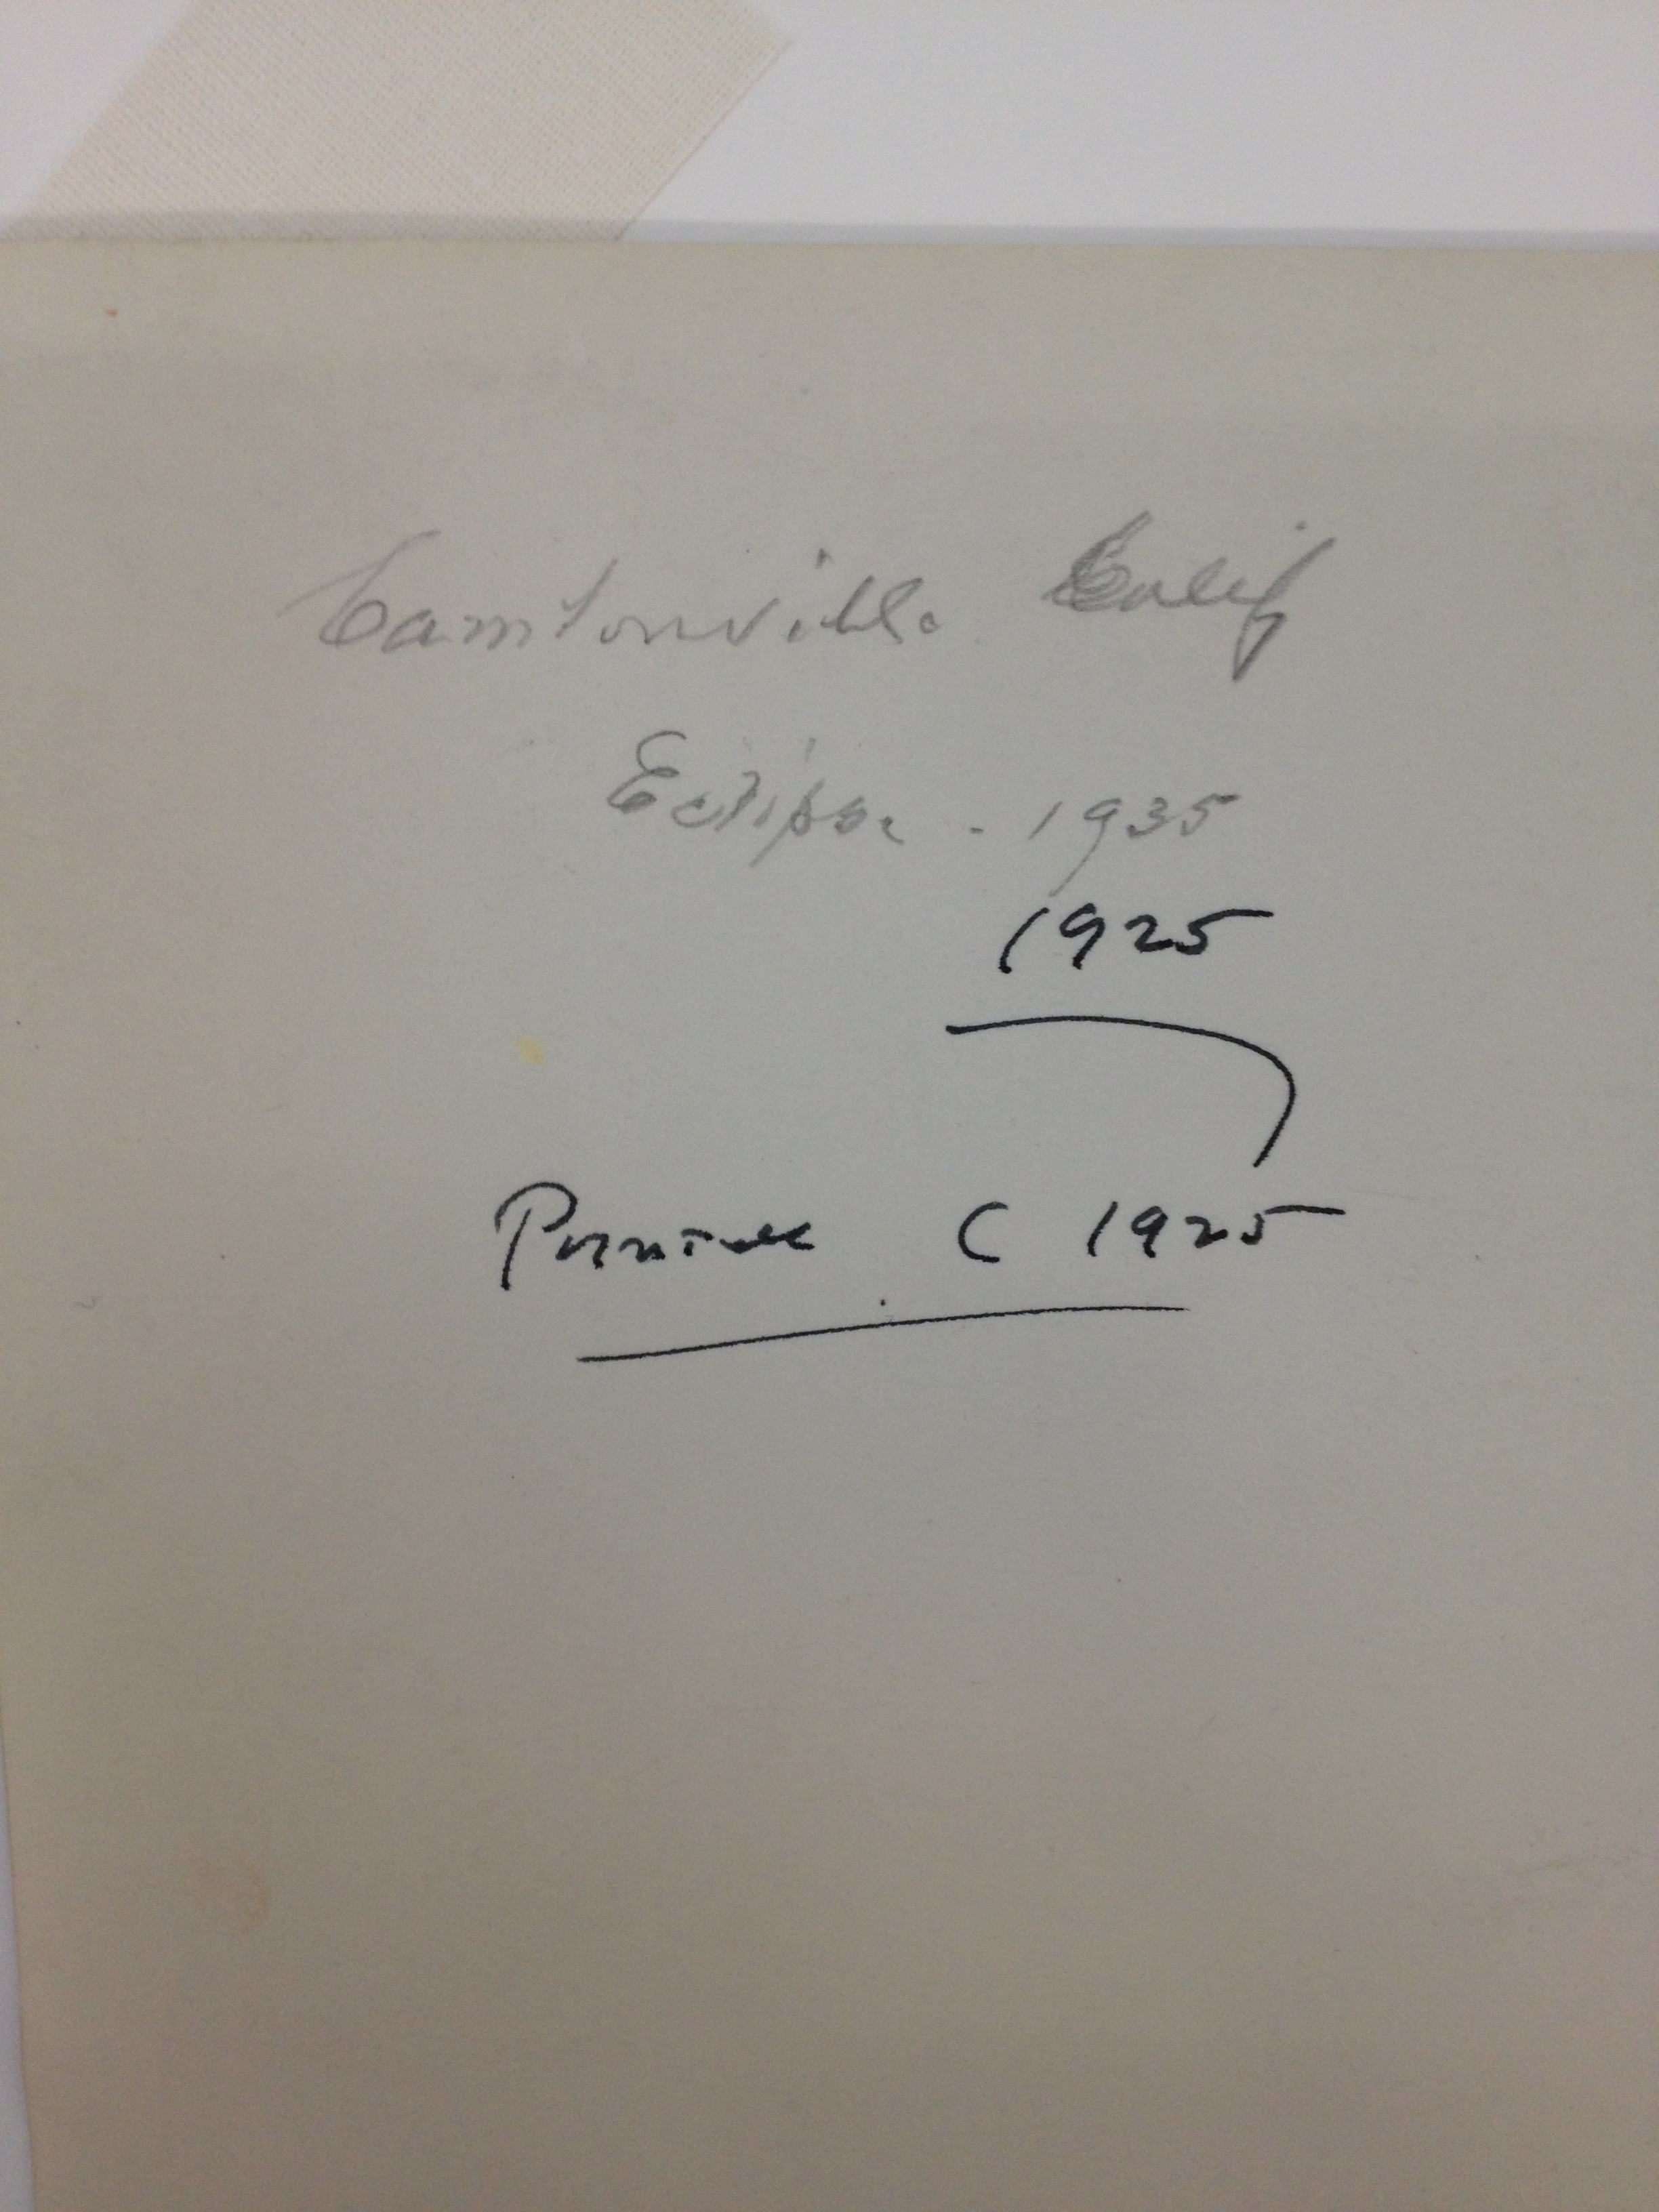 Camtonville Calif
Eclipse - 1935
1925
C 1925